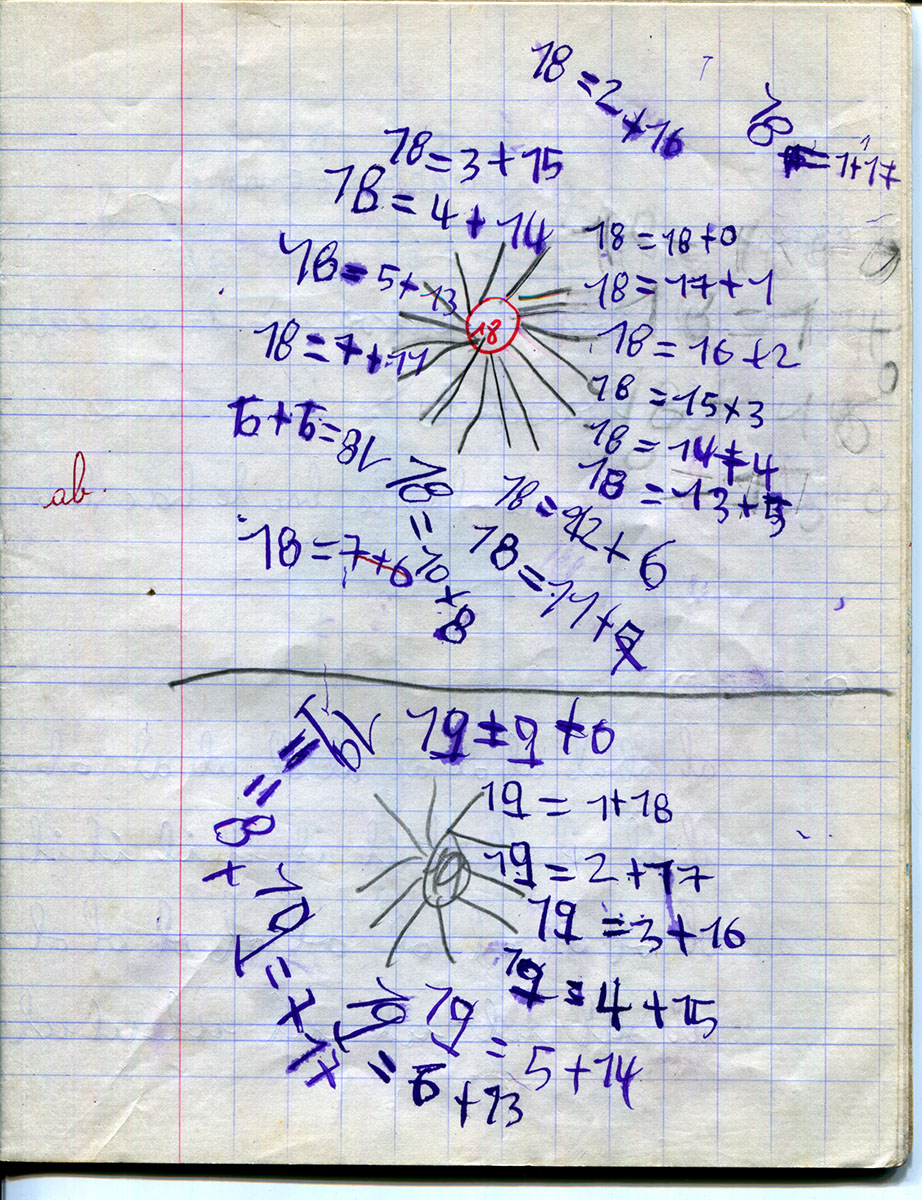 18 = 2 + 16
18 = 1 + 17
18 = 3 + 15
18 = 4 + 14
18 = 5 + 13
18 = 7 + 11
18 = 18 + 0
18 = 17 + 1
18 = 16 + 2
18 = 15 + 3
18 = 14 + 4
18 = 13 + 5
18 = 12 + 6
18 = 11 + 7
18 = 10 + 8
18 =
18 = 7 + 6
18
ab.
19 = 9 + 0
19 = 1 + 18
19 = 2 + 17
19 = 3 + 16
19 = 4 + 15
19 = 5 + 14
19 = 6 + 13
19 = 7 +
19 = 8 +
19